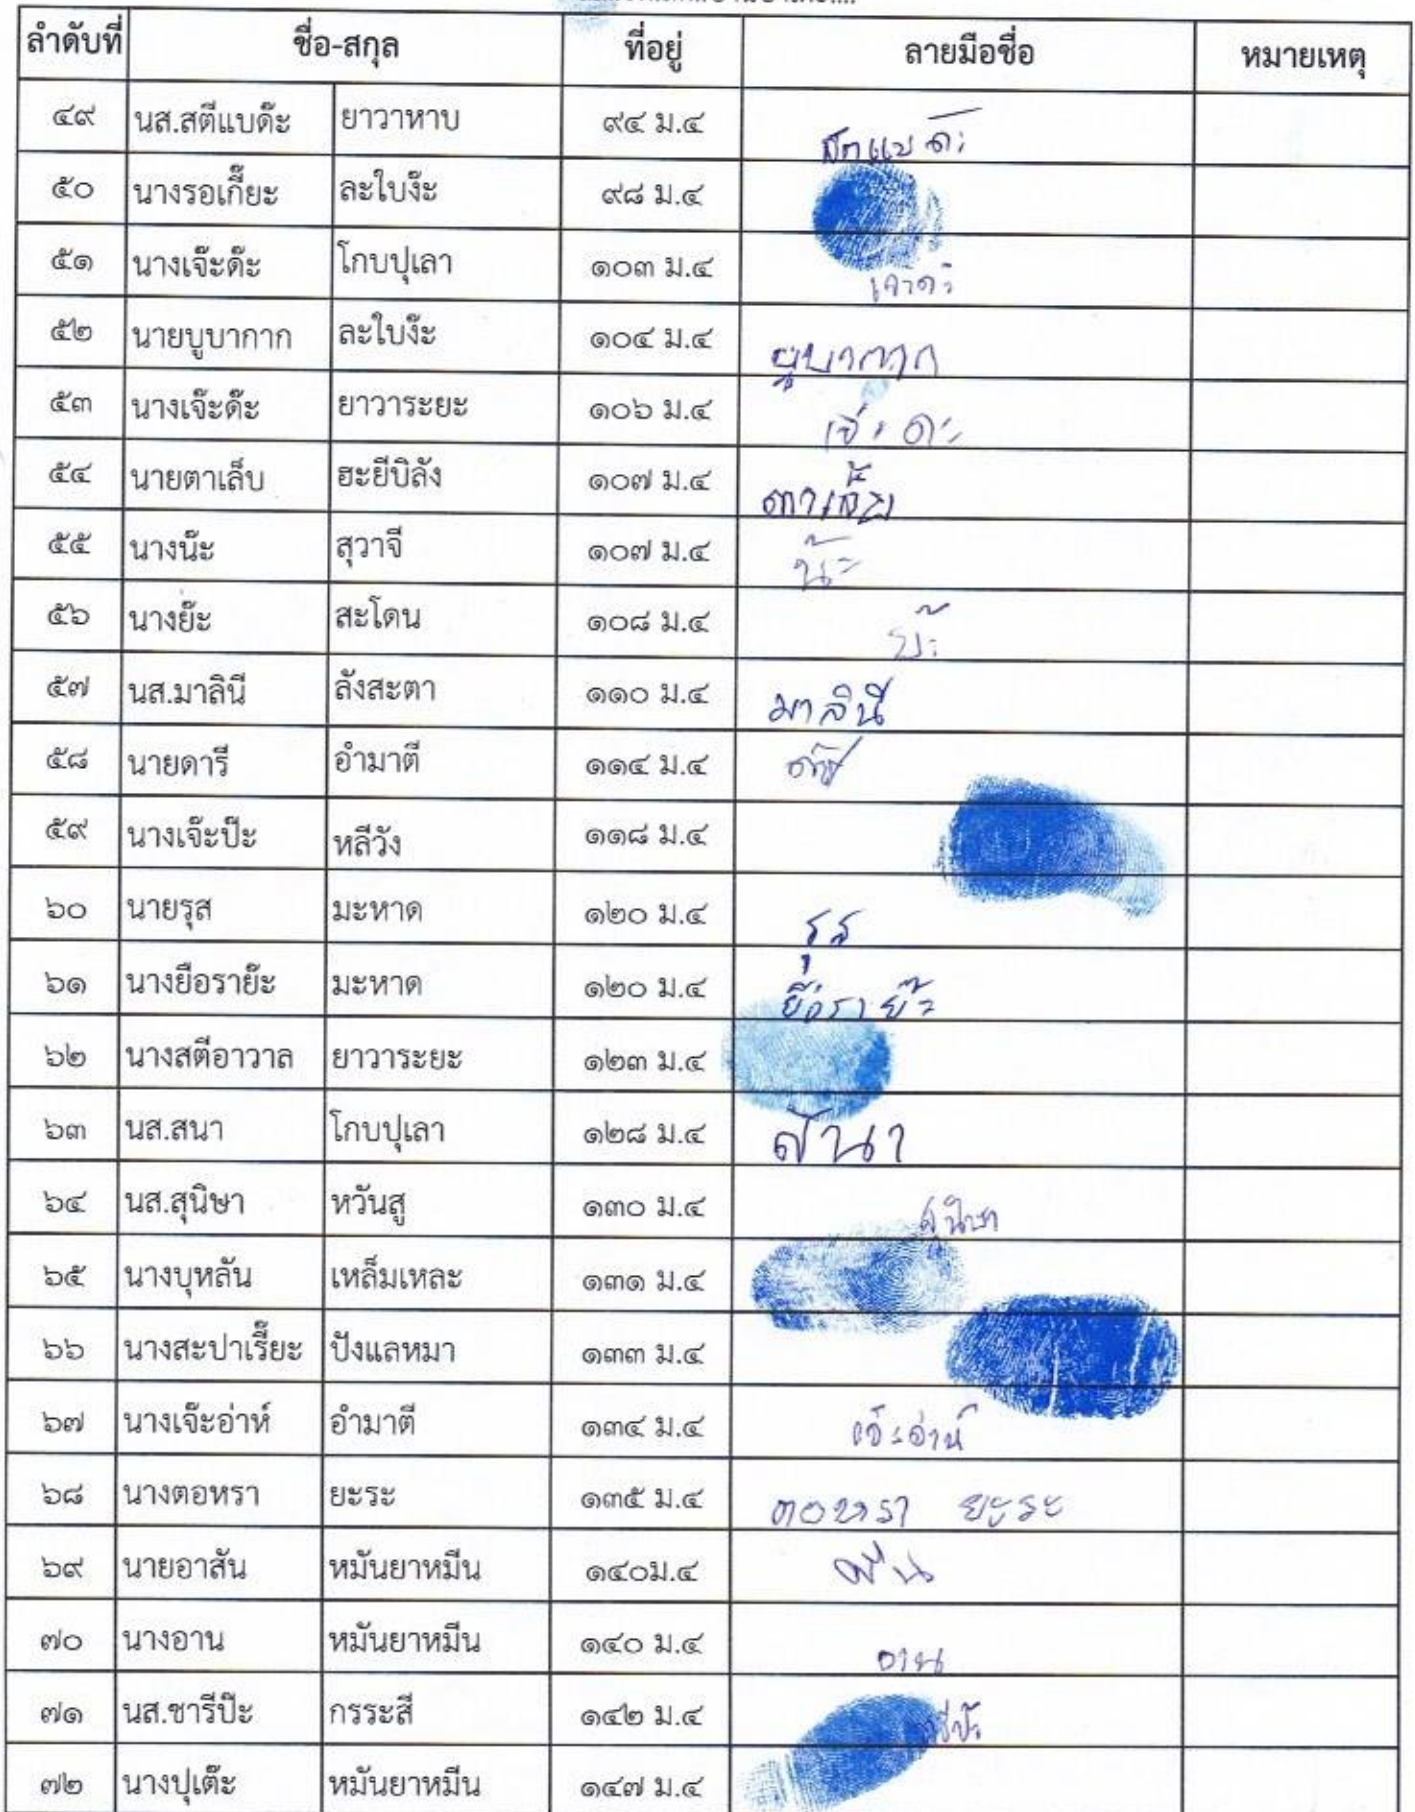 ลำดับที่ ชื่อ-สกุล ที่อยู่ ลายมือชื่อ หมายเหตุ
๔๙ นส.สตีแบด๊ะ ยาวาหาบ ๙๔ ม.๔
๕๐ นางรอเกี๊ยะ ละใบง๊ะ ๙๘ ม.๔
๕๑ นางเจ๊ะด๊ะ โกบปุเลา ๑๐๓ ม.๔
๕๒ นายบูบากาก ละใบง๊ะ ๑๐๔ ม.๔ บูบากาก
๕๓ นางเจ๊ะด๊ะ ยาวาระยะ ๑๐๖ ม.๔
๕๔ นายตาเล็บ ฮะยีบิลัง ๑๐๗ ม.๔
๕๕ นางน๊ะ สุวาจี ๑๐๗ ม.๔ น๊ะ
๕๖ นางย๊ะ สะโดน ๑๐๘ ม.๔ ย๊ะ
๕๗ นส.มาลินี ลังสะตา ๑๑๐ ม.๔ มาลินี
๕๘ นายดารี อำมาตี ๑๑๔ ม.๔
๕๙ นางเจ๊ะป๊ะ หลีวัง ๑๑๘ ม.๔
๖๐ นายรุส มะหาด ๑๒๐ ม.๔ รุส
๖๑ นางยือราย๊ะ มะหาด ๑๒๐ ม.๔ ยือราย๊ะ
๖๒ นางสตีอาวาล ยาวาระยะ ๑๒๓ ม.๔
๖๓ นส.สนา โกบปุเลา ๑๒๘ ม.๔ ส้นา
๖๔ นส.สุนิษา หวันสู ๑๓๐ ม.๔ สุนิษา
๖๕ นางบุหลัน เหล็มเหละ ๑๓๑ ม.๔
๖๖ นางสะปาเรี๊ยะ ปังแลหมา ๑๓๓ ม.๔
๖๗ นางเจ๊ะอ่าห์ อำมาตี ๑๓๔ ม.๔ เจ๊ะอ่าห์
๖๘ นางตอหรา ยะระ ๑๓๕ ม.๔ ตอหรา ยะระ
๖๙ นายอาสัน หมันยาหมีน ๑๔๐ม.๔
๗๐ นางอาน หมันยาหมีน ๑๔๐ ม.๔ อาน
๗๑ นส.ซารีป๊ะ กรระสี ๑๔๒ ม.๔
๗๒ นางปุเต๊ะ หมันยาหมีน ๑๔๗ ม.๔